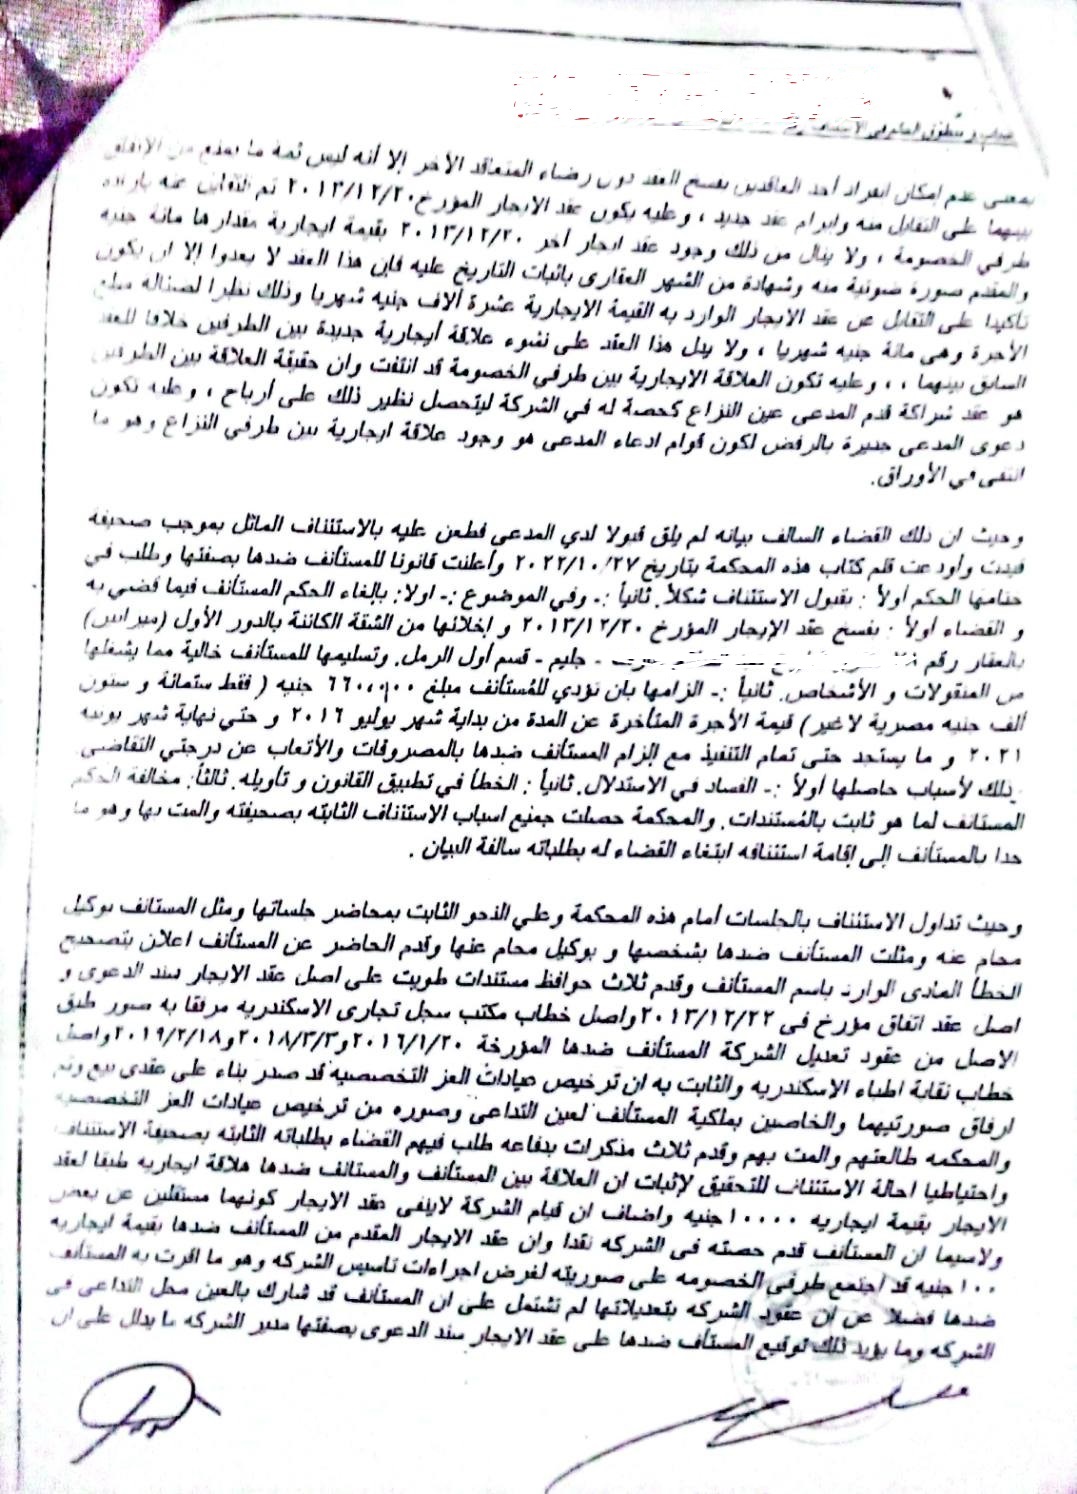 بمعنى عدم إمكان انفراد أحد العاقدين بفسخ العقد دون رضاء المتعاقد الأخر إلا أنه ليس ثمة ما يمنع من الإتفاق
بينهما على التقابل منه وإبرام عقد جديد ، وعليه يكون عقد الايجار المؤرخ ٢٠١٣/١٢/٢٠ تم التقابل عنه بارادة
طرفي الخصومة ، ولا ينال من ذلك وجود عقد ايجار أخر ٢٠١٣/١٢/٢٠ بقيمة ايجارية مقدارها مائة جنيه
والمقدم صورة ضوئية منه وشهادة من الشهر العقارى باثبات التاريخ عليه فإن هذا العقد لا يعدوا إلا ان يكون
تأكيدا على التقابل عن عقد الايجار الوارد به القيمة الايجارية عشرة ألاف جنيه شهريا وذلك نظرا لضئالة مبلغ
الأجرة وهى مائة جنيه شهريا ، ولا يدل هذا العقد على نشوء علاقة أيجارية جديدة بين الطرفين خلافا للعقد
السابق بينهما ، ، وعليه تكون العلاقة الايجارية بين طرفي الخصومة قد انتفت وان حقيقة العلاقة بين الطرفين
هو عقد شراكة قدم المدعى عين النزاع كحصة له في الشركة ليتحصل نظير ذلك على أرباح ، وعليه تكون
دعوى المدعى جديرة بالرفض لكون قوام ادعاء المدعى هو وجود علاقة ايجارية بين طرفي النزاع وهو ما
انتفى في الأوراق.
وحيث ان ذلك القضاء السالف بيانه لم يلق قبولا لدي المدعى فطعن عليه بالاستئناف الماثل بموجب صحيفة
قيدت وأودعت قلم كتاب هذه المحكمة بتاريخ ٢٠٢٢/١٠/٢٧ وأعلنت قانونا للمستأنف ضدها بصفتها وطلب في
ختامها الحكم أولاً : بقبول الاستئناف شكلاً. ثانياً :ـ وفي الموضوع :ـ اولا: بإلغاء الحكم المستأنف فيما قضي به
و القضاء أولاً : بفسخ عقد الإيجار المؤرخ ٢٠١٣/١٢/٢٠ و إخلائها من الشقة الكائنة بالدور الأول (ميزانين)
بالعقار رقم - جليم - قسم أول الرمل. وتسليمها للمستأنف خالية مما يشغلها
من المنقولات و الأشخاص. ثانياً :ـ الزامها بان تؤدي للمُستأنف مبلغ ٦٦٠،٠٠٠ جنيه ( فقط ستمائة و ستون
ألف جنيه مصرية لا غير) قيمة الأجرة المتأخرة عن المدة من بداية شهر يوليو ٢٠١٦ و حتي نهاية شهر يونيه
٢٠٢١ و ما يستجد حتى تمام التنفيذ مع إلزام المستأنف ضدها بالمصروفات والأتعاب عن درجتي التقاضي.
وذلك لأسباب حاصلها أولاً :ـ الفساد في الاستدلال. ثانياً : الخطأ في تطبيق القانون و تأويله. ثالثاً: مخالفة الحكم
المستانف لما هو ثابت بالمُستندات. والمحكمة حصلت جميع اسباب الاستئناف الثابته بصحيفته والمت بها وهو ما
حدا بالمستأنف إلى إقامة استئنافه ابتغاء القضاء له بطلباته سالفة البيان .
وحيث تداول الاستئناف بالجلسات أمام هذه المحكمة وعلي النحو الثابت بمحاضر جلساتها ومثل المستانف بوكيل
محام عنه ومثلت المستأنف ضدها بشخصها و بوكيل محام عنها وقدم الحاضر عن المستأنف اعلان بتصحيح
الخطأ المادى الوارد باسم المستأنف وقدم ثلاث حوافظ مستندات طويت على اصل عقد الايجار سند الدعوى و
اصل عقد اتفاق مؤرخ فى ٢٠١٣/١٢/٢٢ واصل خطاب مكتب سجل تجارى الاسكندريه مرفقا به صور طبق
الاصل من عقود تعديل الشركة المستأنف ضدها المؤرخة ٢٠١٦/١/٢٠ و٢٠١٨/٣/٣ و٢٠١٩/٢/١٨ واصل
خطاب نقابة اطباء الاسكندريه والثابت به ان ترخيص عيادات العز التخصصيه قد صدر بناء على عقدى بيع وتم
ارفاق صورتيهما والخاصين بملكية المستأنف لعين التداعى وصوره من ترخيص عيادات العز التخصصيه
والمحكمه طالعتهم والمت بهم وقدم ثلاث مذكرات بدفاعه طلب فيهم القضاء بطلباته الثابته بصحيفة الاستئناف
واحتياطيا احالة الاستئناف للتحقيق لإثبات ان العلاقة بين المستأنف والمستانف ضدها علاقة ايجاريه طبقا لعقد
الايجار بقيمة ايجاريه ١٠٠٠٠ جنيه واضاف ان قيام الشركة لاينفى عقد الايجار كونهما مستقلين عن بعض
ولاسيما ان المستأنف قدم حصته فى الشركه نقدا وان عقد الايجار المقدم من المستأنف ضدها بقيمة ايجاريه
١٠٠ جنيه قد اجتمع طرفى الخصومه على صوريته لغرض اجراءات تاسيس الشركه وهو ما اقرت به المستأنف
ضدها فضلا عن ان عقود الشركه بتعديلاتها لم تشتمل على ان المستأنف قد شارك بالعين محل التداعى فى
الشركه وما يؤيد ذلك توقيع المستأف ضدها على عقد الايجار سند الدعوى بصفتها مدير الشركه ما يدلل على ان